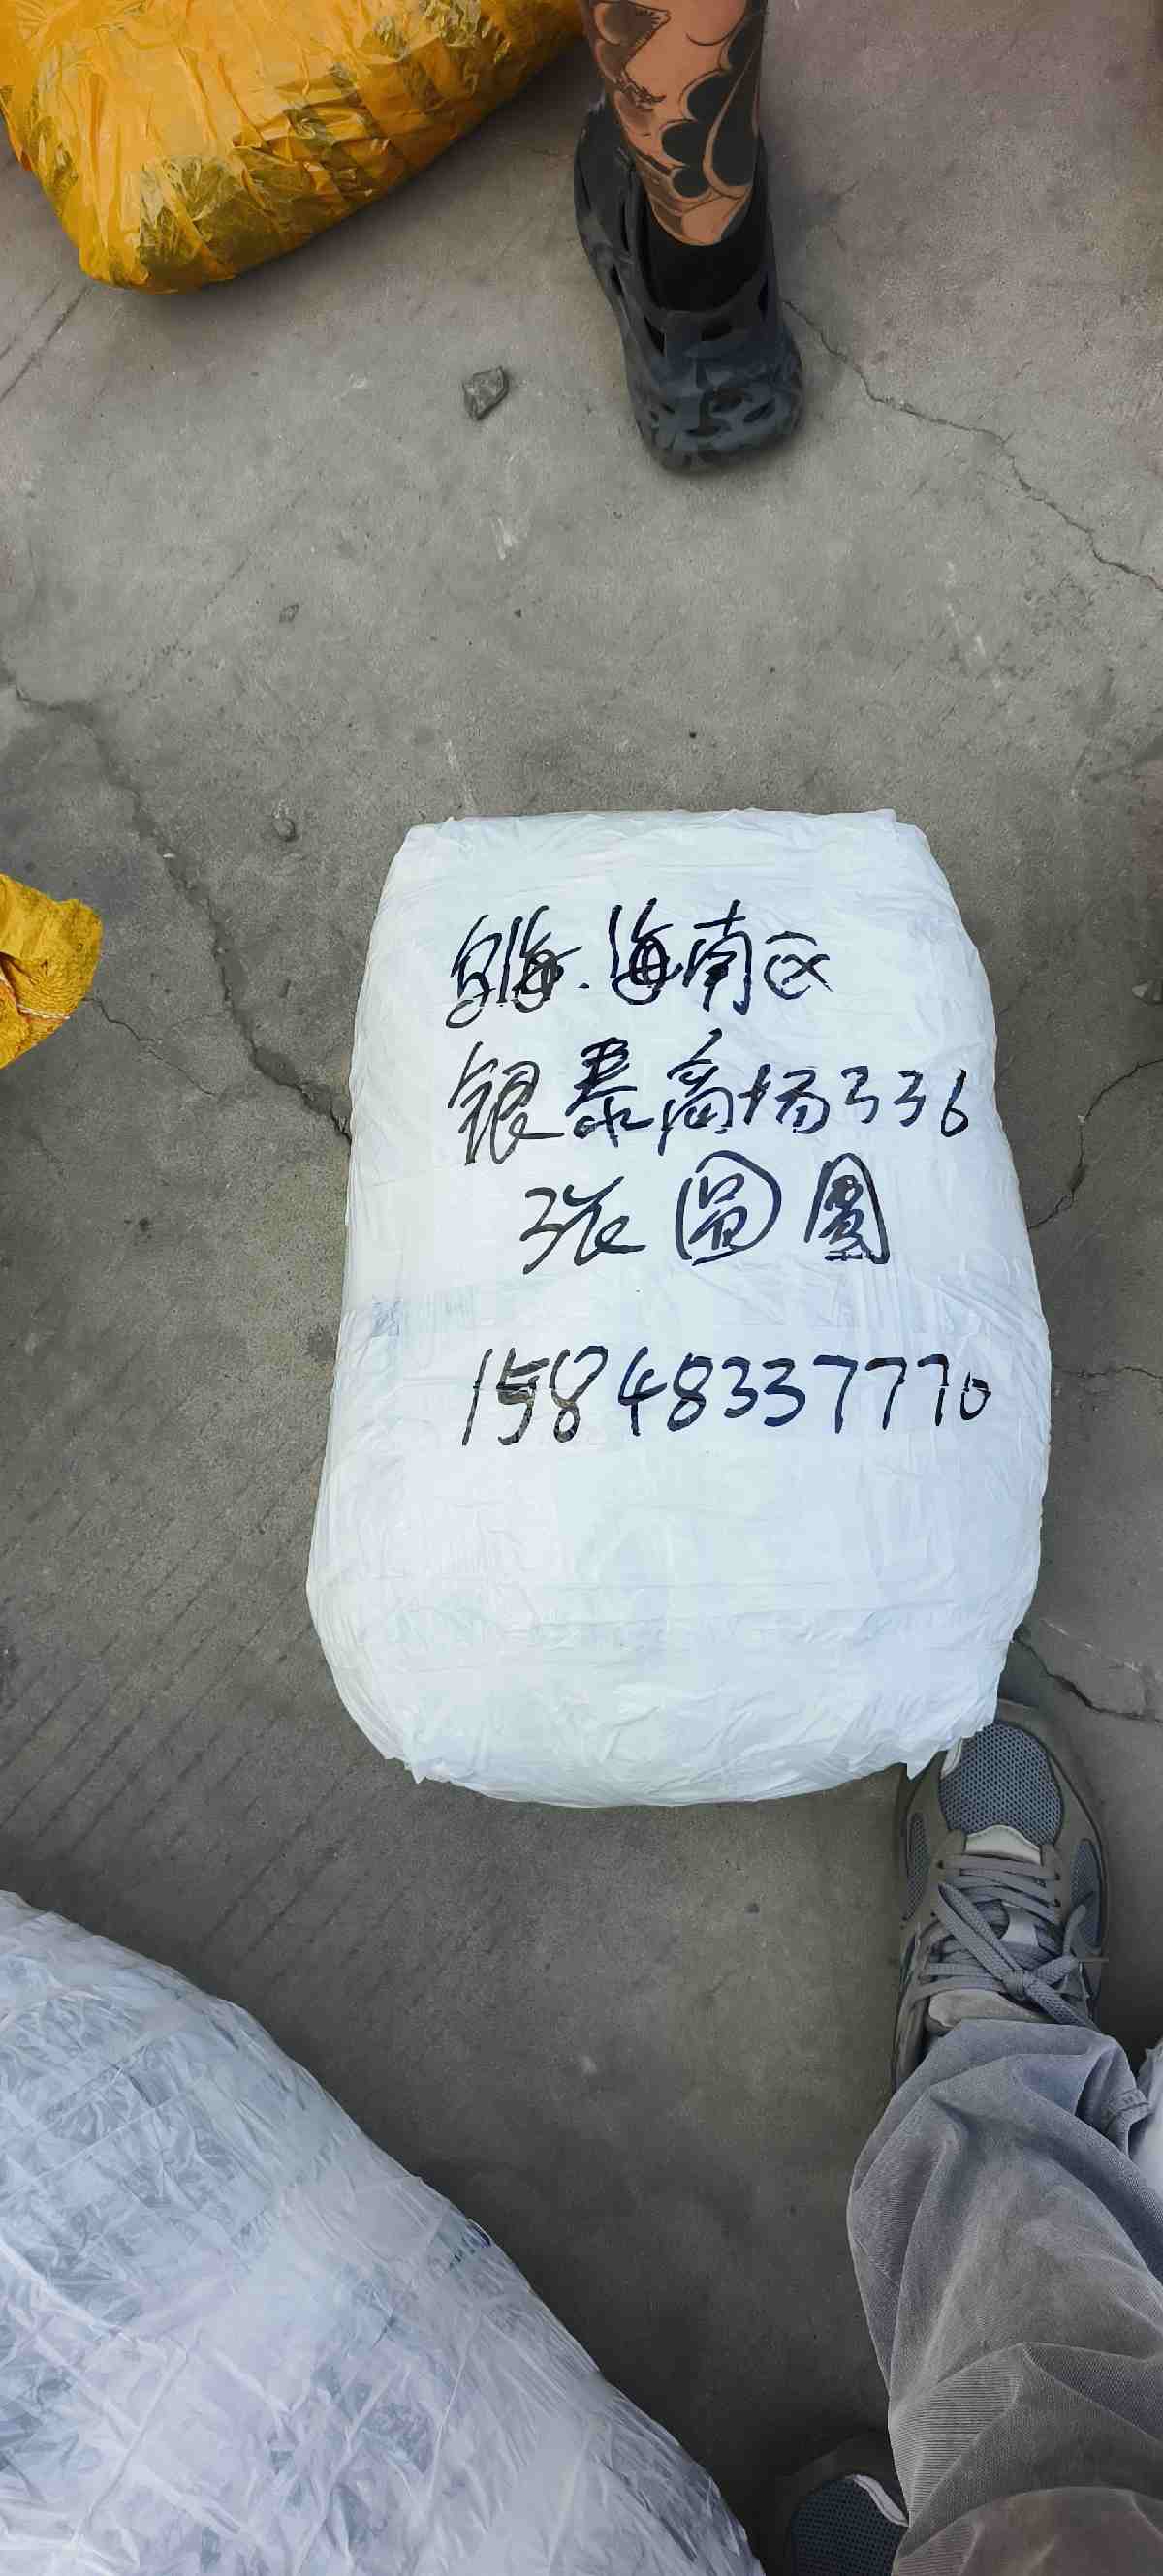 乌海.海南区
银泰商场336
张圆團
15848337770